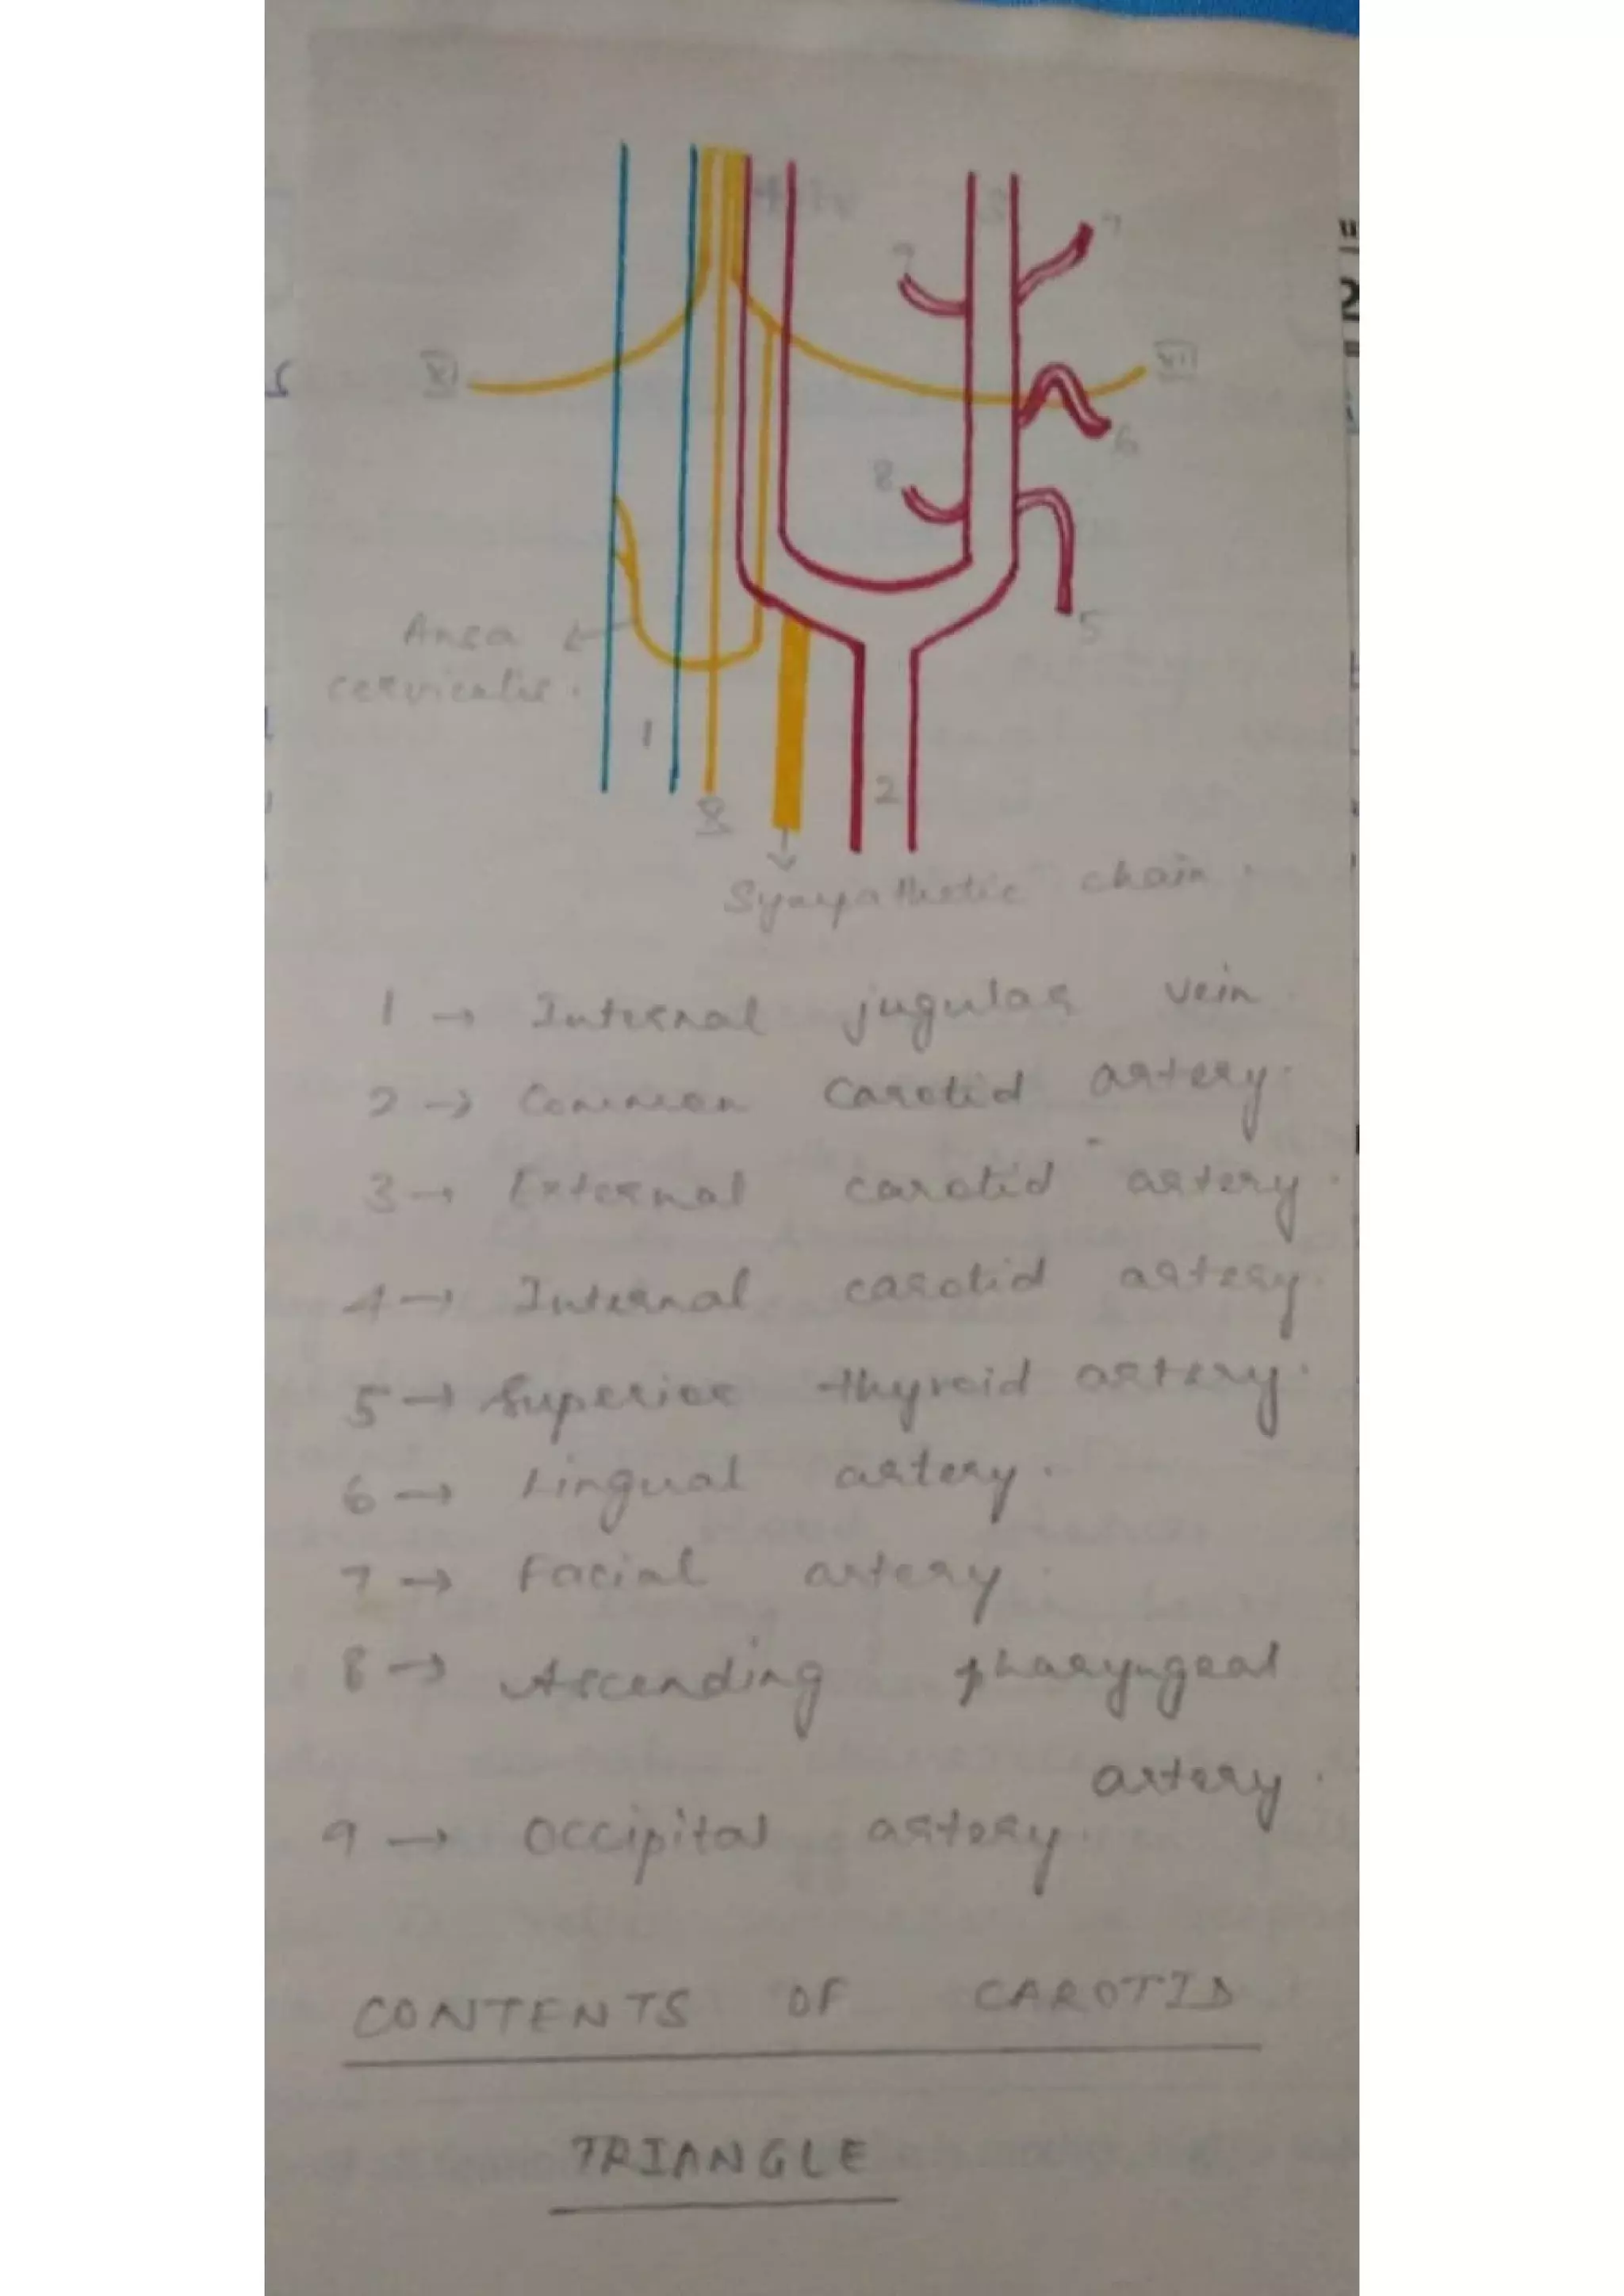 4
3
7
9
XI
XII
6
8
5
Ansa
cervicalis.
1
2
X
Sympathetic chain.
1 → Internal jugular vein
2 → Common Carotid artery.
3 → External carotid artery.
4 → Internal carotid artery.
5 → Superior thyroid artery.
6 → Lingual artery.
7 → Facial artery.
8 → Ascending pharyngeal
artery.
9 → Occipital artery.
CONTENTS OF CAROTID
TRIANGLE